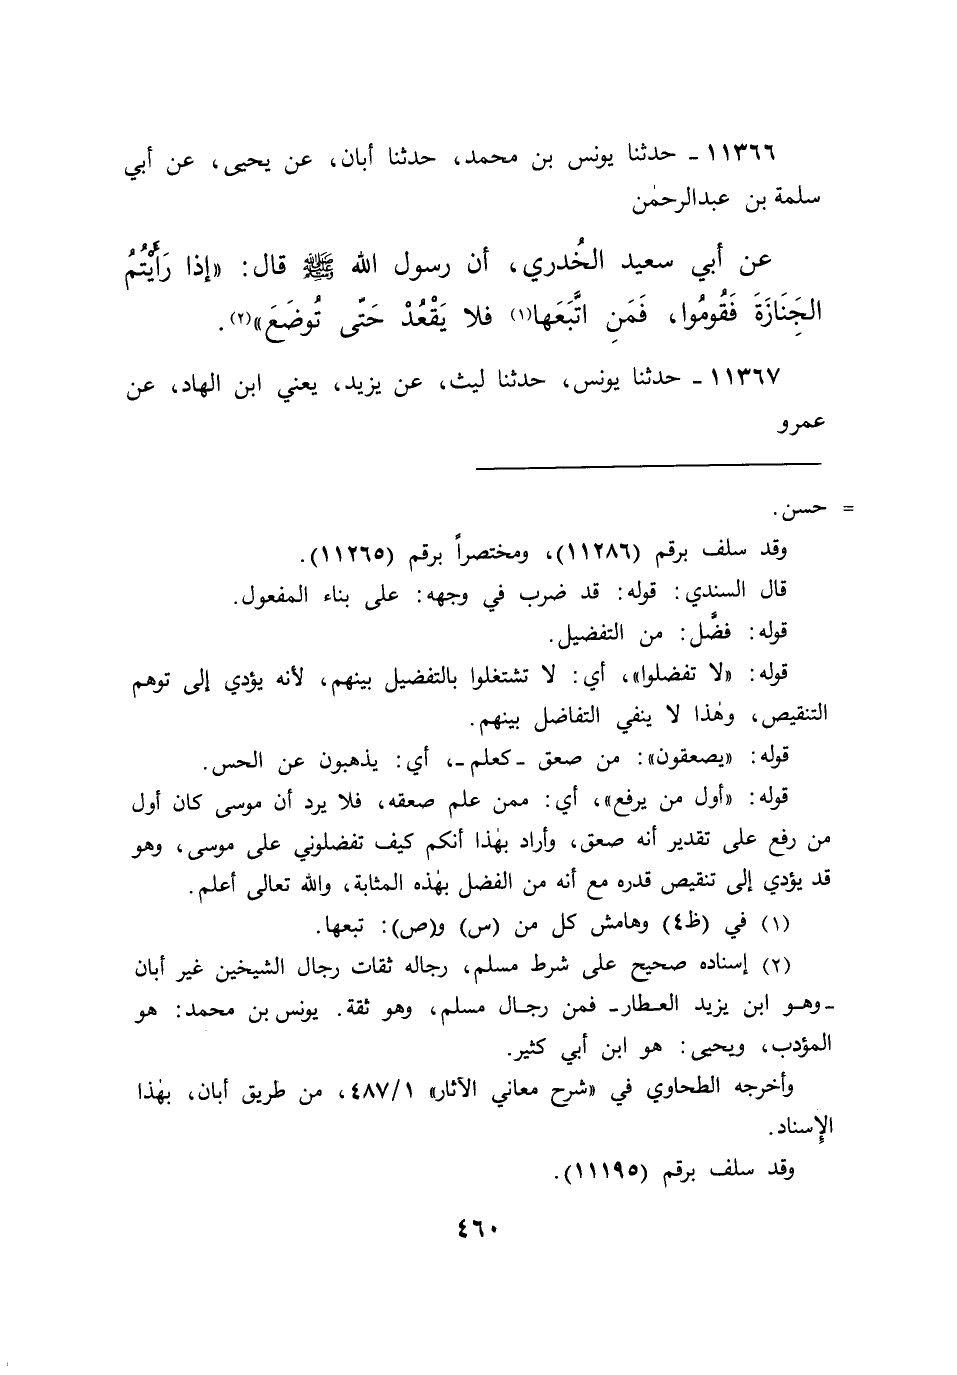 ١١٣٦٦ ـ حدثنا يونس بن محمد، حدثنا أبان، عن يحيى، عن أبي
سلمة بن عبدالرحمٰن
عن أبي سعيد الخُدري، أن رسول الله ﷺ قال: «إذا رَأَيْتُمُ
الجَنَازَةَ فَقُومُوا، فَمَنِ اتَّبَعَها(١) فلا يَقْعُدْ حَتّى تُوضَعَ»(٢).
١١٣٦٧ ـ حدثنا يونس، حدثنا ليث، عن يزيد، يعني ابن الهاد، عن
عمرو
= حسن.
وقد سلف برقم (١١٢٨٦)، ومختصراً برقم (١١٢٦٥).
قال السندي: قوله: قد ضرب في وجهه: على بناء المفعول.
قوله: فضَّل: من التفضيل.
قوله: «لا تفضلوا»، أي: لا تشتغلوا بالتفضيل بينهم، لأنه يؤدي إلى توهم
التنقيص، وهٰذا لا ينفي التفاضل بينهم.
قوله: «يصعقون»: من صعق ـكعلم ـ، أي: يذهبون عن الحس.
قوله: «أول من يرفع»، أي: ممن علم صعقه، فلا يرد أن موسى كان أول
من رفع على تقدير أنه صعق، وأراد بهٰذا أنكم كيف تفضلوني على موسى، وهو
قد يؤدي إلى تنقيص قدره مع أنه من الفضل بهٰذه المثابة، والله تعالى أعلم.
(١) في (ظ٤) وهامش كل من (س) و(ص): تبعها.
(٢) إسناده صحيح على شرط مسلم، رجاله ثقات رجال الشيخين غير أبان
ـ وهو ابن يزيد العطار ـ فمن رجال مسلم، وهو ثقة. يونس بن محمد: هو
المؤدب، ويحيى: هو ابن أبي كثير.
وأخرجه الطحاوي في «شرح معاني الآثار» ٤٨٧/١، من طريق أبان، بهٰذا
الإِسناد.
وقد سلف برقم (١١١٩٥).
٤٦٠